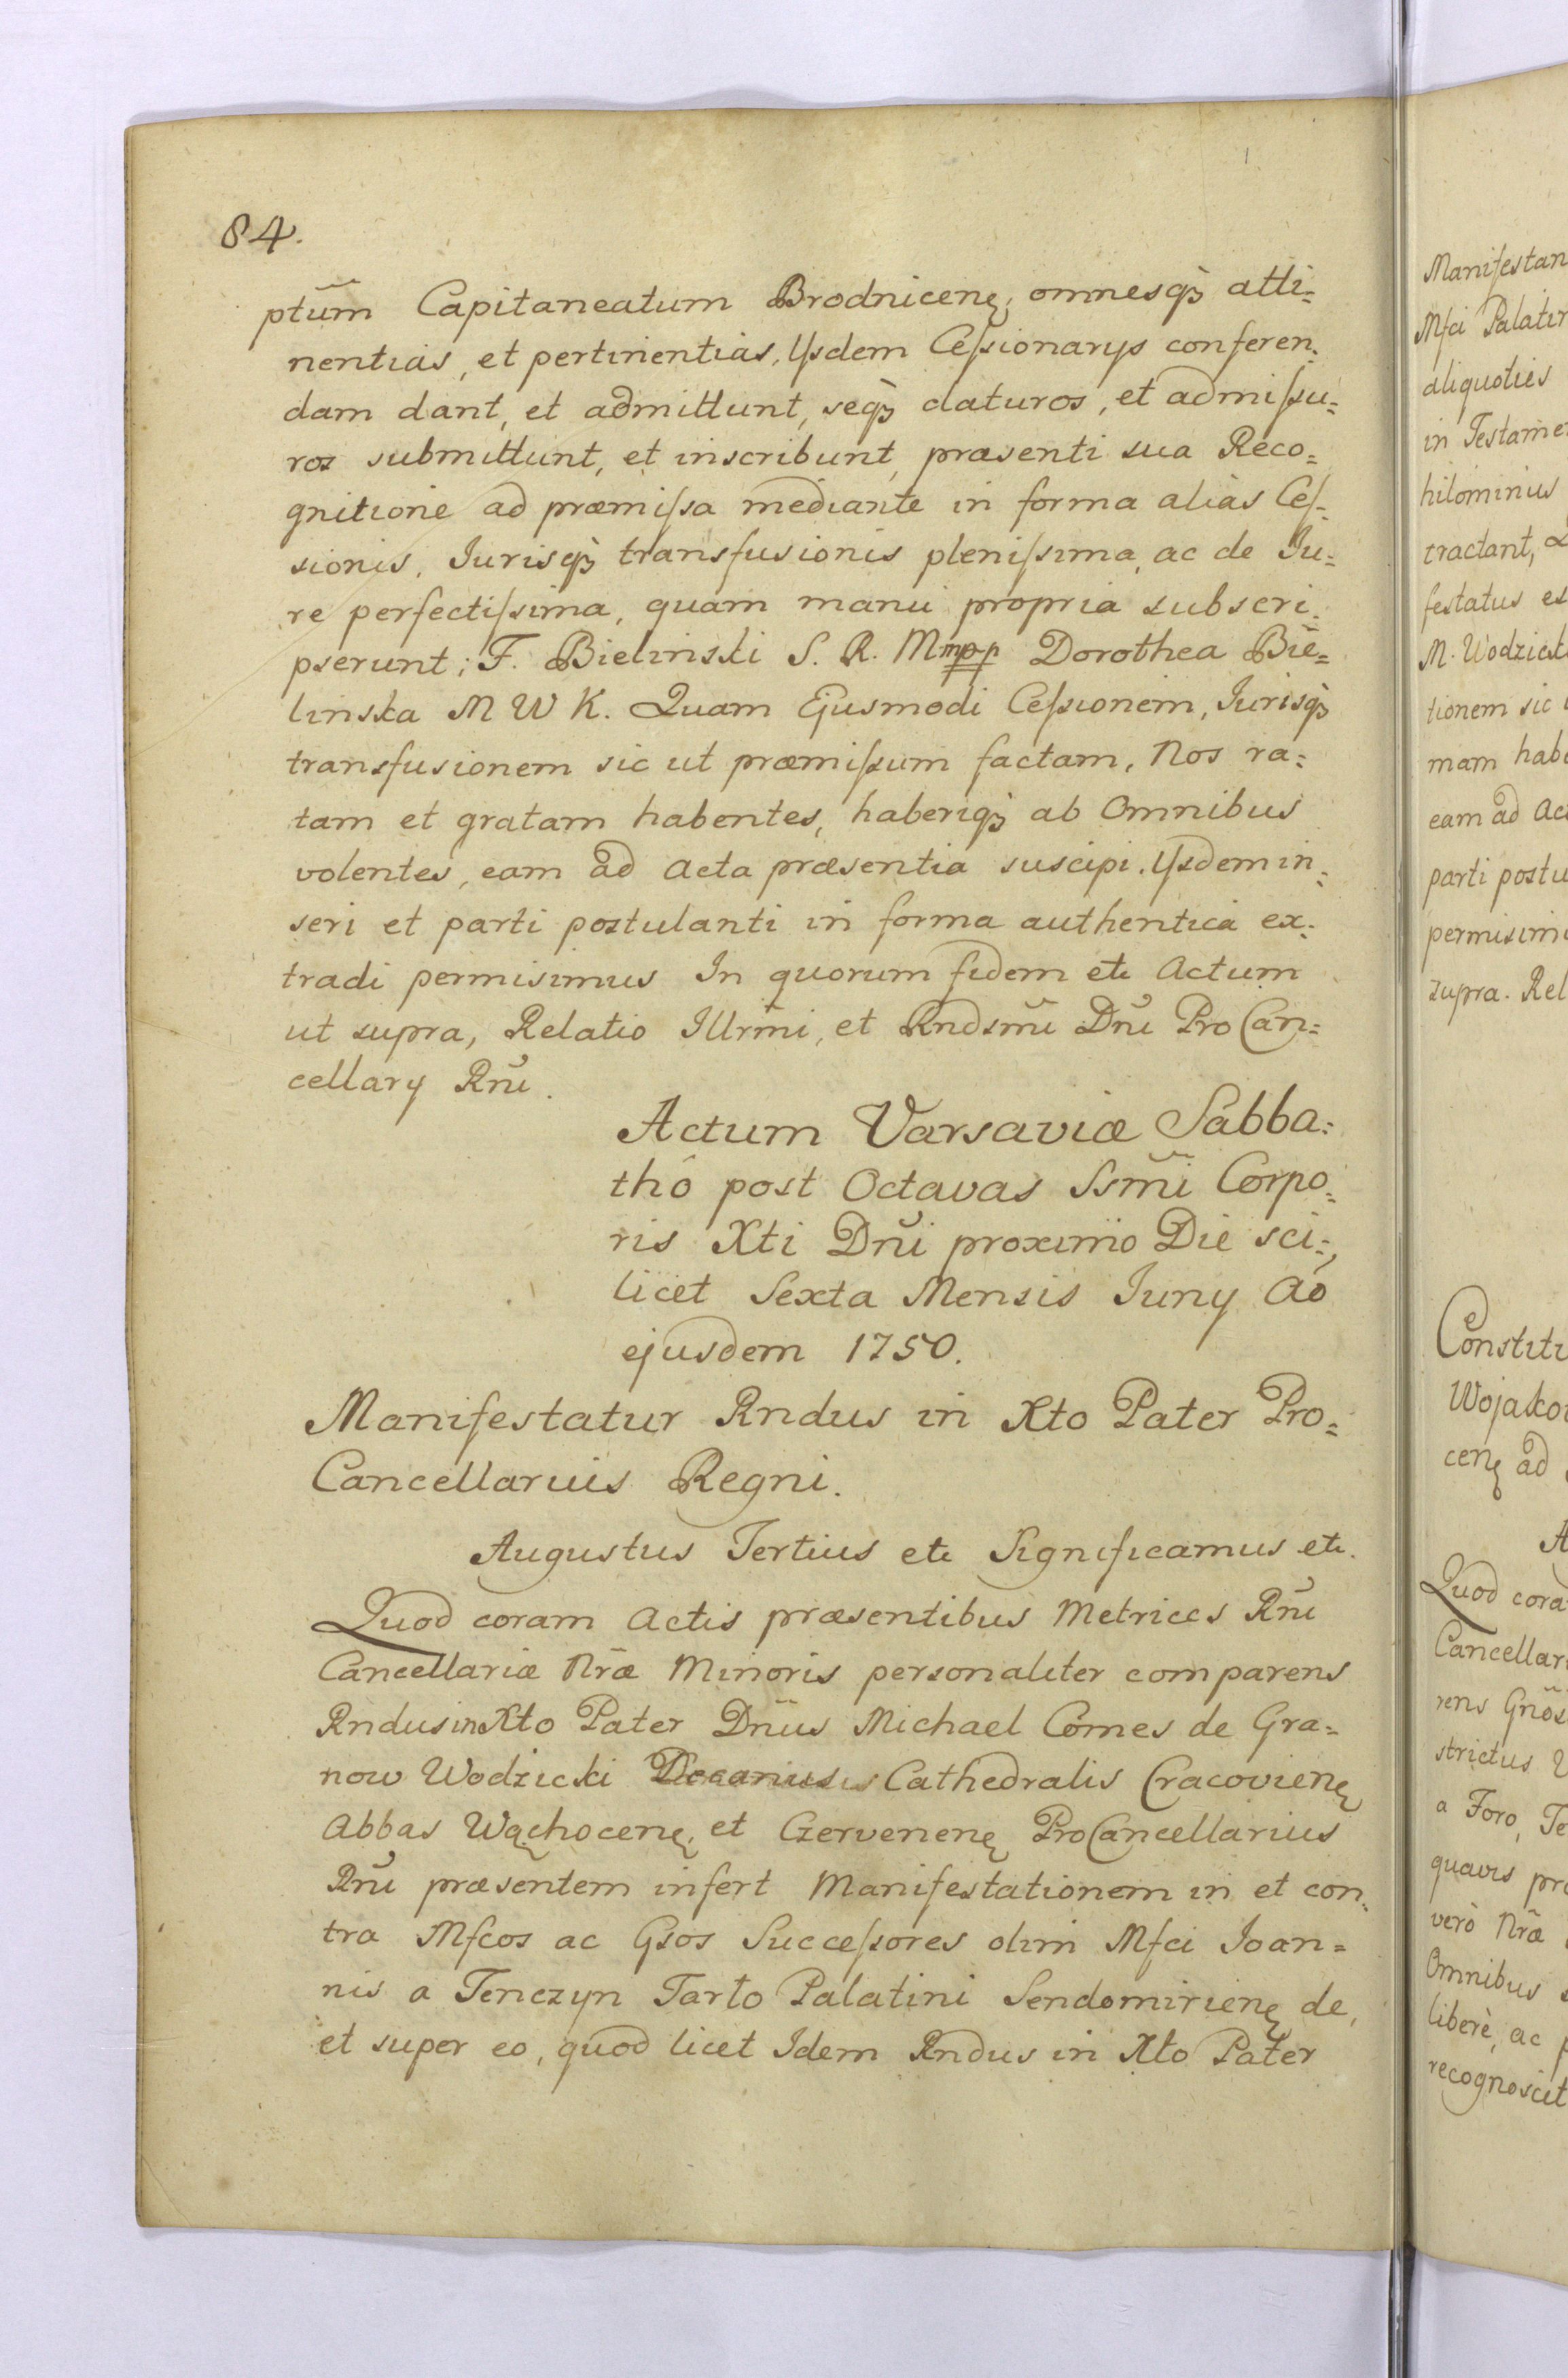 84.
ptum̃ Capitaneatum Brodnicenę, omnesqꝫ atti=
nentias, et pertinentias, Ijsdem Ceſsionarys conferen=
dam dant, et admittunt, seqꝫ daturos, et admiſsu=
ros submittunt, et inscribunt, præsenti sua Reco=
gnitione ad præmiſsa mediante in forma aliàs Ceſ=
sionis, Iurisqꝫ transfusionis pleniſsima, ac de Iu=
re perfectiſsima, quam manu propria subscri=
pserunt; F. Bielinski S. R. M mpp Dorothea Bie=
linska M W K. Quam Ejusmodi Ceſsionem, Iurisqꝫ
transfusionem sic ut præmiſsum factam, Nos ra=
tam et gratam habentes, haberiqꝫ ab Omnibus
volentes, eam ad Acta præsentia suscipi, Ijsdem in=
seri et parti postulanti in forma authentica ex=
tradi permisimus In quorum fidem etc Actum
ut supra, Relatio Illrm̃i, et Rndsm̃i Dñi ProCan=
cellary Rñi.
Actum Varsaviæ Sabba=
thô post Octavas Ssm̃i Corpo=
ris Xti Dñi proximo Die sci=
licet Sexta Mensis Iuny Aõ
ejusdem 1750.
Manifestatur Rndus in Xto Pater Pro=
Cancellarius Regni.
Augustus Tertius etc Significamus etc.
Quod coram Actis præsentibus Metrices Rñi
Cancellariæ Nr̃æ Minoris personaliter comparens
Rndus in Xto Pater Dñus Michael Comes de Gra=
now Wodzicki Decanus Cathedralis Cracovienę
Abbas Wąchocenę, et Czervenenę ProCancellarius
Rñi præsentem infert Manifestationem in et con=
tra Mfcos ac Gsos Succeſsores olim Mfci Ioan=
nis a Tenczyn Tarło Palatini Sendomirienę de,
et super eo, quod licet Idem Rndus in Xto Pater
Manifestan
Mfci Palatin
aliquoties
in Testame
hilominus
tractant,
festatus es
M. Wodzick
tionem sic
mam hab
eam ad Ac
parti postu
permisim
supra. Rel
Constitu
Wojakow
cenę ad
A
Quod cora
Cancellari
rens Gños
strictus
a Foro, Te
quavis pr
verò Nr̃æ
Omnibus
liberè, ac p
recognoscit